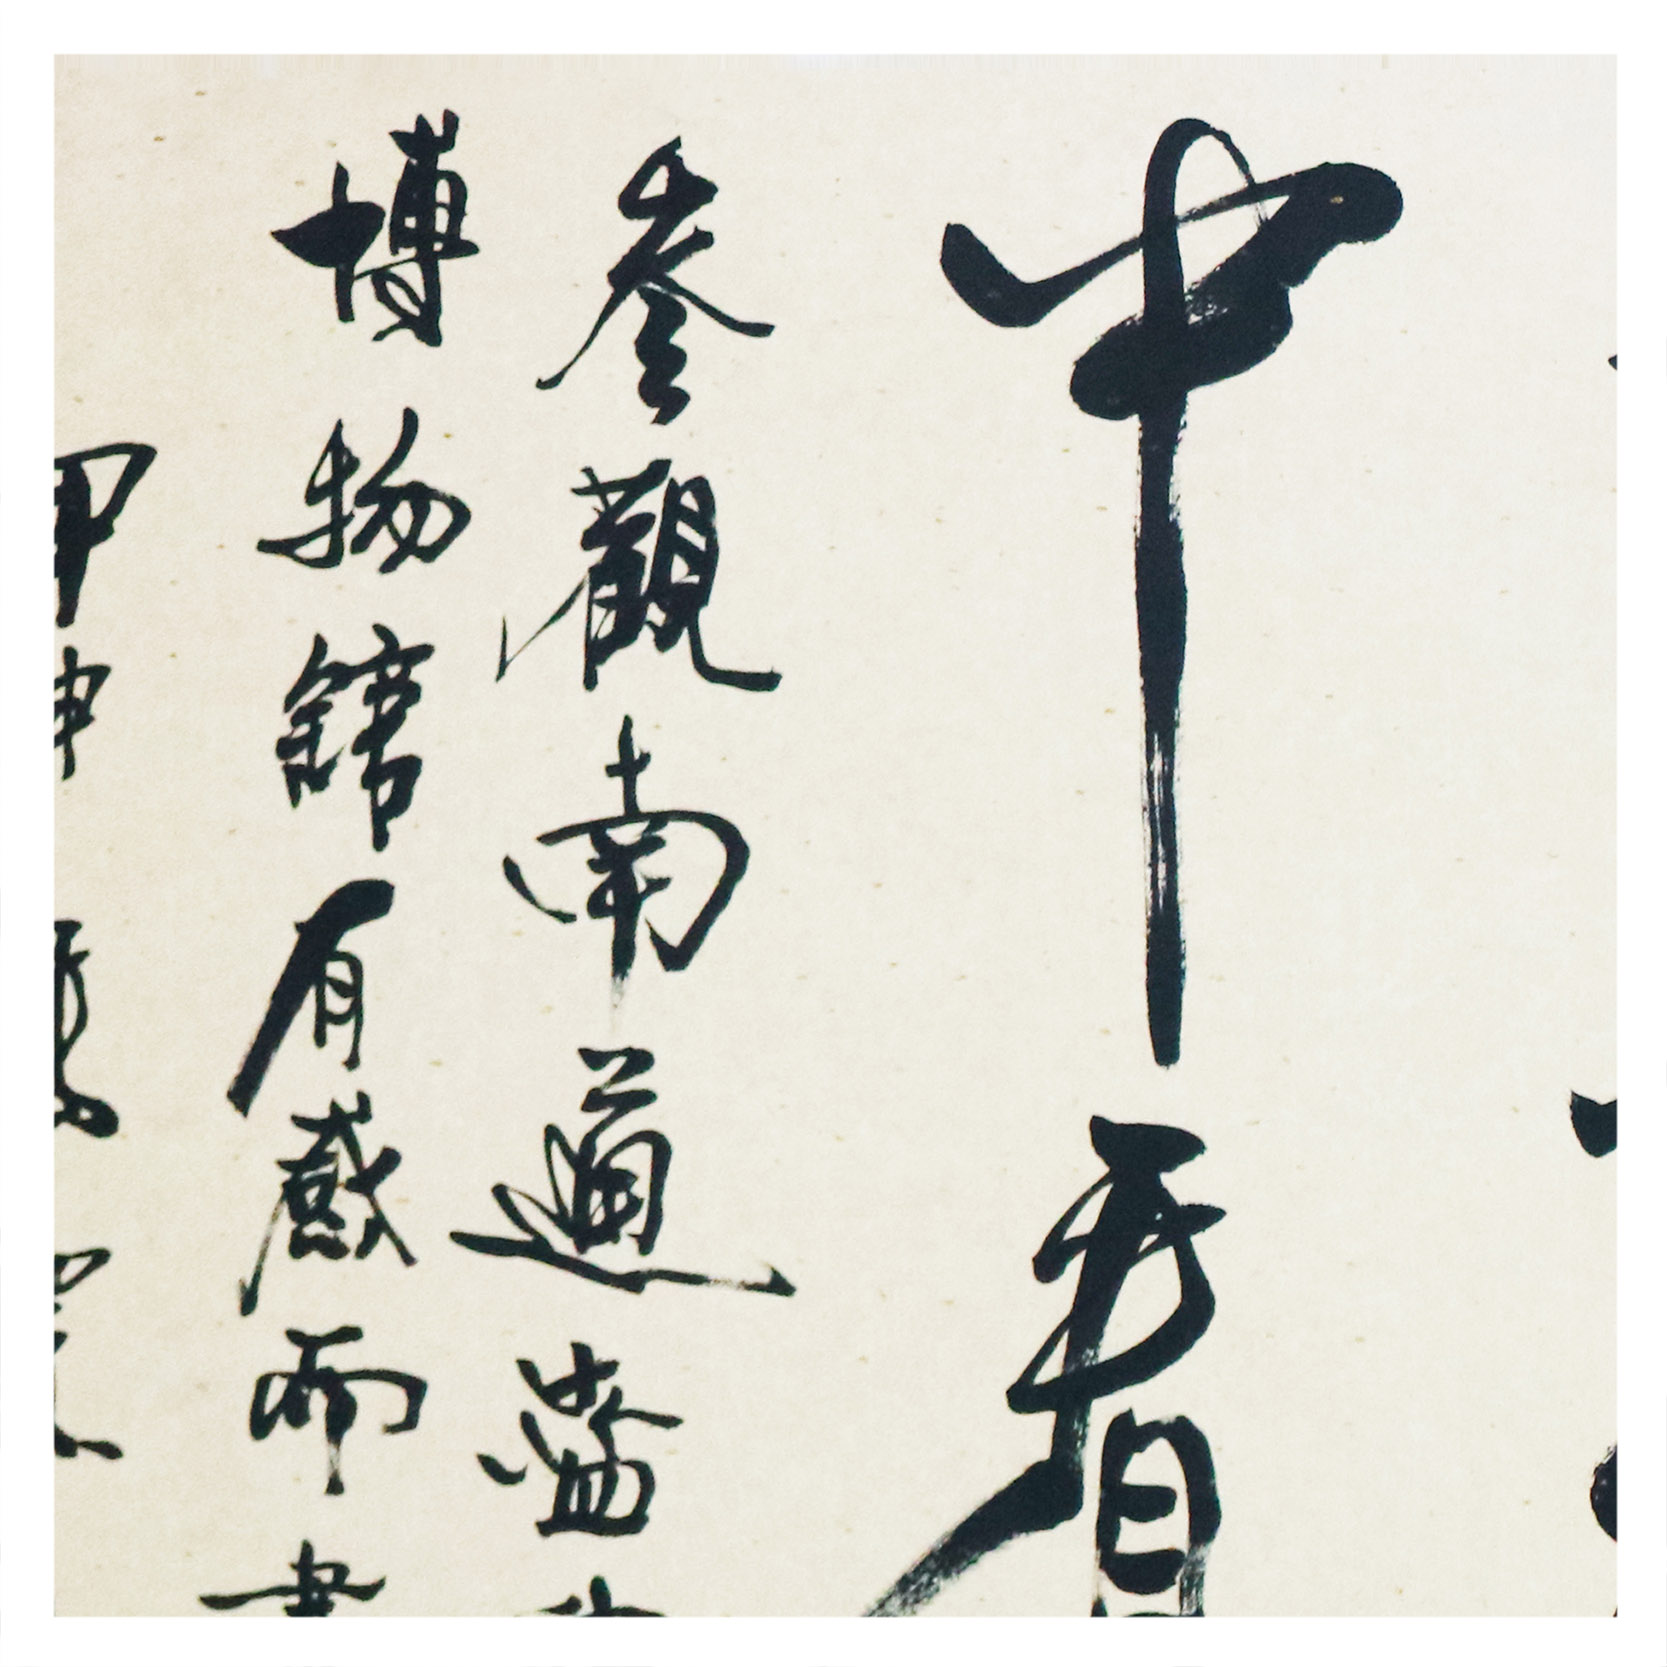 中看
參觀南通藍
博物館有感而書
甲申